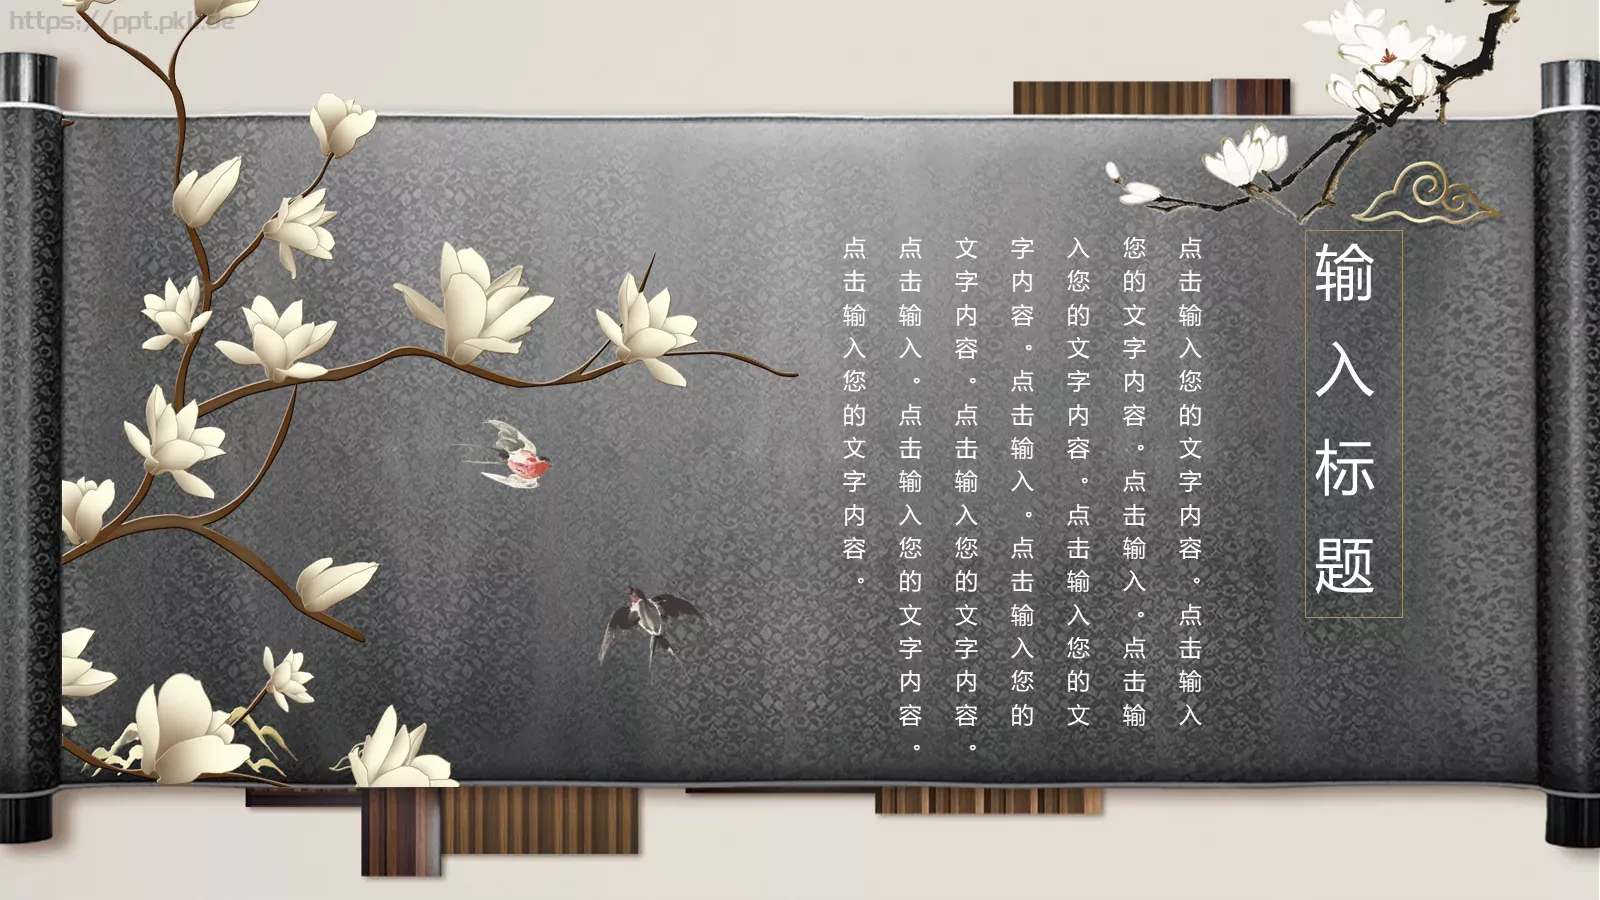 输入标题
点击输入您的文字内容。点击输入
您的文字内容。点击输入。点击输
入您的文字内容。点击输入您的文
字内容。点击输入。点击输入您的
文字内容。点击输入您的文字内容。
点击输入。点击输入您的文字内容。
点击输入您的文字内容。